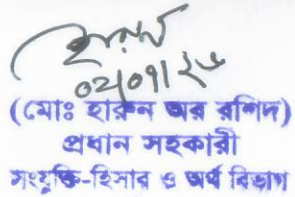 হারুন
০২/০৭/২৬
(মোঃ হারুন অর রশিদ)
প্রধান সহকারী
সংযুক্তি-হিসাব ও অর্থ বিভাগ